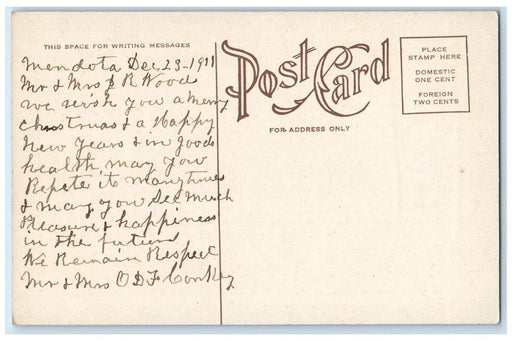 THIS SPACE FOR WRITING MESSAGES
Post Card
FOR ADDRESS ONLY
PLACE
STAMP HERE
DOMESTIC
ONE CENT
FOREIGN
TWO CENTS
Mendota Dec 23-1911
Mr & Mrs R Woods
we wish you a Merry
Christmas & a Happy
New Years & in good
health may you
Repete it many times
& may you See much
Pleasure & happiness
in the future
We Remain Respect
Mr & Mrs O D F Conkey